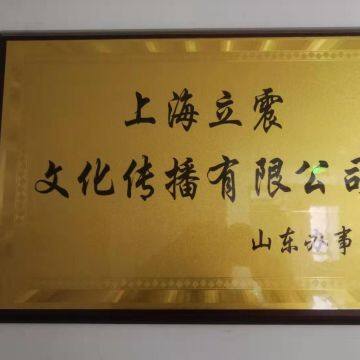 上海立震
文化传播有限公司
山东办事